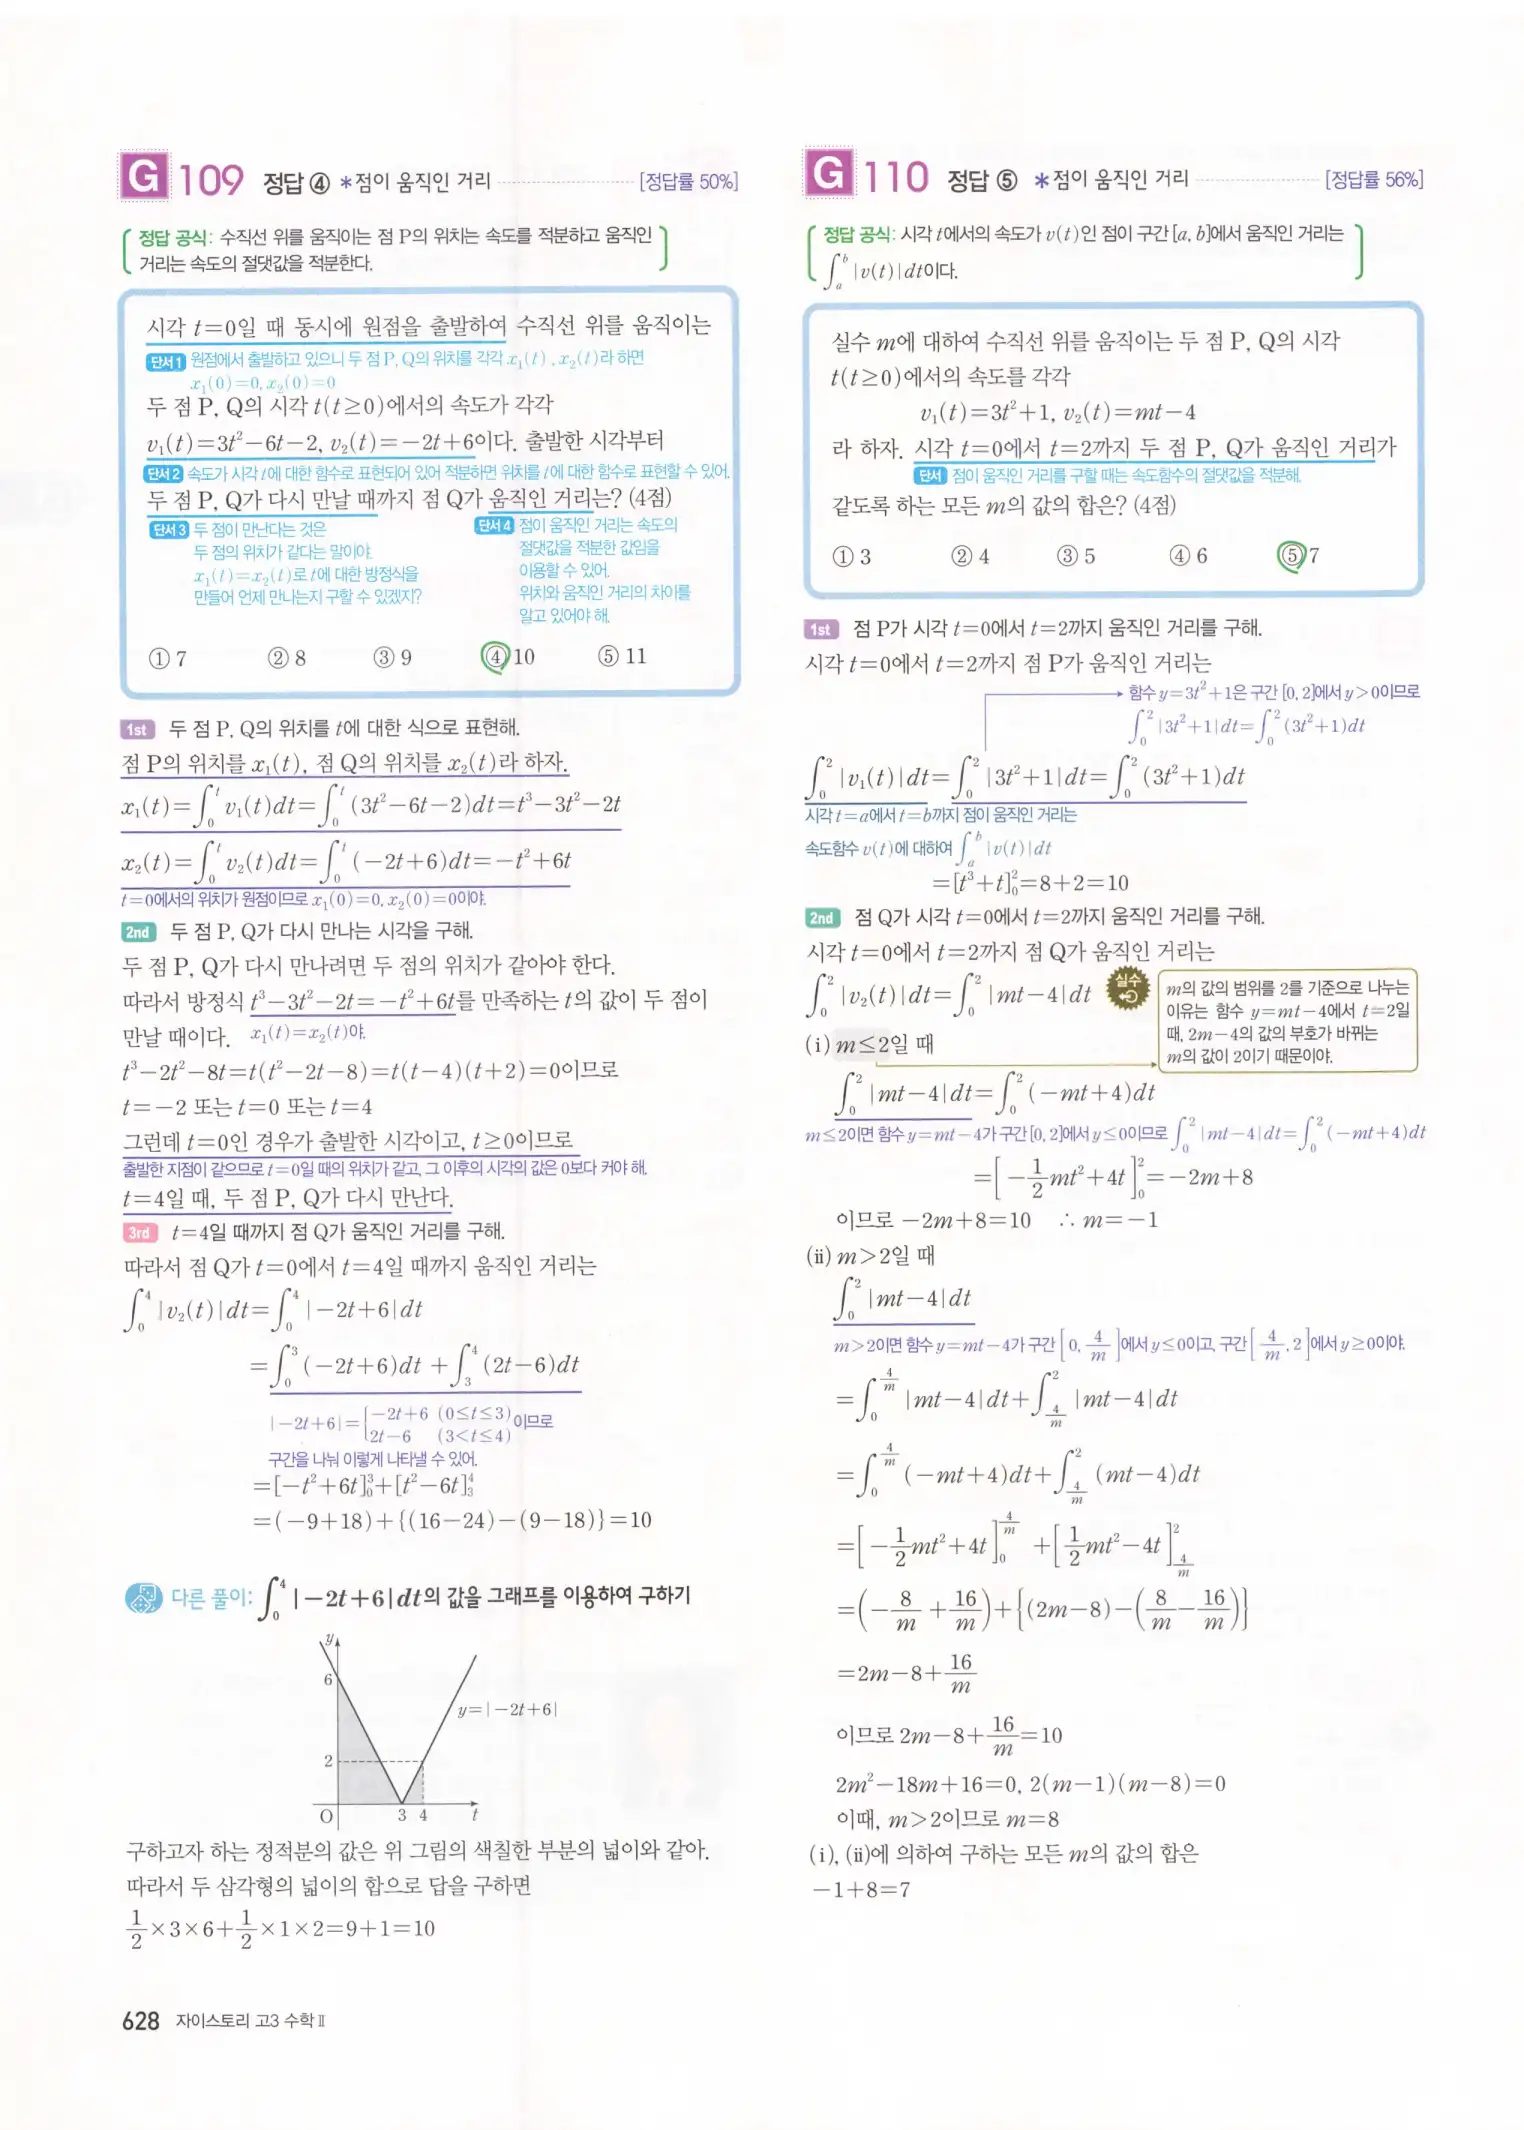 G 109 정답 ④ *점이 움직인 거리 [정답률 50%]
정답 공식: 수직선 위를 움직이는 점 P의 위치는 속도를 적분하고 움직인
거리는 속도의 절댓값을 적분한다.
시각 t=0일 때 동시에 원점을 출발하여 수직선 위를 움직이는
단서1 원점에서 출발하고 있으니 두 점 P, Q의 위치를 각각 x₁(t), x₂(t)라 하면
x₁(0)=0, x₂(0)=0
두 점 P, Q의 시각 t(t≥0)에서의 속도가 각각
v₁(t)=3t²-6t-2, v₂(t)=-2t+6이다. 출발한 시각부터
단서2 속도가 시각 t에 대한 함수로 표현되어 있어 적분하면 위치를 t에 대한 함수로 표현할 수 있어.
두 점 P, Q가 다시 만날 때까지 점 Q가 움직인 거리는? (4점)
단서3 두 점이 만난다는 것은
두 점의 위치가 같다는 말이야.
x₁(t)=x₂(t)로 t에 대한 방정식을
만들어 언제 만나는지 구할 수 있겠지?
단서4 점이 움직인 거리는 속도의
절댓값을 적분한 값임을
이용할 수 있어.
위치와 움직인 거리의 차이를
알고 있어야 해.
① 7 ② 8 ③ 9 ④ 10 ⑤ 11
1st 두 점 P, Q의 위치를 t에 대한 식으로 표현해.
점 P의 위치를 x₁(t), 점 Q의 위치를 x₂(t)라 하자.
x₁(t)=∫₀ᵗ v₁(t)dt=∫₀ᵗ (3t²-6t-2)dt=t³-3t²-2t
x₂(t)=∫₀ᵗ v₂(t)dt=∫₀ᵗ (-2t+6)dt=-t²+6t
t=0에서의 위치가 원점이므로 x₁(0)=0, x₂(0)=0이야.
2nd 두 점 P, Q가 다시 만나는 시각을 구해.
두 점 P, Q가 다시 만나려면 두 점의 위치가 같아야 한다.
따라서 방정식 t³-3t²-2t=-t²+6t를 만족하는 t의 값이 두 점이
만날 때이다. x₁(t)=x₂(t)야.
t³-2t²-8t=t(t²-2t-8)=t(t-4)(t+2)=0이므로
t=-2 또는 t=0 또는 t=4
그런데 t=0인 경우가 출발한 시각이고, t≥0이므로
출발한 지점이 같으므로 t=0일 때의 위치가 같고, 그 이후의 시각의 값은 0보다 커야 해.
t=4일 때, 두 점 P, Q가 다시 만난다.
3rd t=4일 때까지 점 Q가 움직인 거리를 구해.
따라서 점 Q가 t=0에서 t=4일 때까지 움직인 거리는
∫₀⁴ |v₂(t)|dt=∫₀⁴ |-2t+6|dt
=∫₀³ (-2t+6)dt +∫₃⁴ (2t-6)dt
|-2t+6|={-2t+6 (0≤t≤3)
2t-6 (3<t≤4)이므로
구간을 나눠 이렇게 나타낼 수 있어.
=[-t²+6t]₀³+[t²-6t]₃⁴
=(-9+18)+{(16-24)-(9-18)}=10
다른 풀이: ∫₀⁴ |-2t+6|dt의 값을 그래프를 이용하여 구하기
y
6
y=|-2t+6|
2
O 3 4 t
구하고자 하는 정적분의 값은 위 그림의 색칠한 부분의 넓이와 같아.
따라서 두 삼각형의 넓이의 합으로 답을 구하면
1/2×3×6+1/2×1×2=9+1=10
628 자이스토리 고3 수학Ⅱ
G 110 정답 ⑤ *점이 움직인 거리 [정답률 56%]
정답 공식: 시각 t에서의 속도가 v(t)인 점이 구간 [a, b]에서 움직인 거리는
∫ₐᵇ |v(t)|dt이다.
실수 m에 대하여 수직선 위를 움직이는 두 점 P, Q의 시각
t(t≥0)에서의 속도를 각각
v₁(t)=3t²+1, v₂(t)=mt-4
라 하자. 시각 t=0에서 t=2까지 두 점 P, Q가 움직인 거리가
단서 점이 움직인 거리를 구할 때는 속도함수의 절댓값을 적분해.
같도록 하는 모든 m의 값의 합은? (4점)
① 3 ② 4 ③ 5 ④ 6 ⑤ 7
1st 점 P가 시각 t=0에서 t=2까지 움직인 거리를 구해.
시각 t=0에서 t=2까지 점 P가 움직인 거리는
함수 y=3t²+1은 구간 [0, 2]에서 y>0이므로
∫₀² |3t²+1|dt=∫₀² (3t²+1)dt
∫₀² |v₁(t)|dt=∫₀² |3t²+1|dt=∫₀² (3t²+1)dt
시각 t=a에서 t=b까지 점이 움직인 거리는
속도함수 v(t)에 대하여 ∫ₐᵇ |v(t)|dt
=[t³+t]₀²=8+2=10
2nd 점 Q가 시각 t=0에서 t=2까지 움직인 거리를 구해.
시각 t=0에서 t=2까지 점 Q가 움직인 거리는
∫₀² |v₂(t)|dt=∫₀² |mt-4|dt 실수
m의 값의 범위를 2를 기준으로 나누는
이유는 함수 y=mt-4에서 t=2일
때, 2m-4의 값의 부호가 바뀌는
m의 값이 2이기 때문이야.
(ⅰ) m≤2일 때
∫₀² |mt-4|dt=∫₀² (-mt+4)dt
m≤2이면 함수 y=mt-4가 구간 [0, 2]에서 y≤0이므로 ∫₀² |mt-4|dt=∫₀² (-mt+4)dt
=[-1/2mt²+4t]₀²=-2m+8
이므로 -2m+8=10 ∴ m=-1
(ⅱ) m>2일 때
∫₀² |mt-4|dt
m>2이면 함수 y=mt-4가 구간 [0, 4/m]에서 y≤0이고, 구간 [4/m, 2]에서 y≥0이야.
=∫₀^(4/m) |mt-4|dt+∫_(4/m)² |mt-4|dt
=∫₀^(4/m) (-mt+4)dt+∫_(4/m)² (mt-4)dt
=[-1/2mt²+4t]₀^(4/m) +[1/2mt²-4t]_(4/m)²
=(-8/m+16/m)+{(2m-8)-(8/m-16/m)}
=2m-8+16/m
이므로 2m-8+16/m=10
2m²-18m+16=0, 2(m-1)(m-8)=0
이때, m>2이므로 m=8
(ⅰ), (ⅱ)에 의하여 구하는 모든 m의 값의 합은
-1+8=7